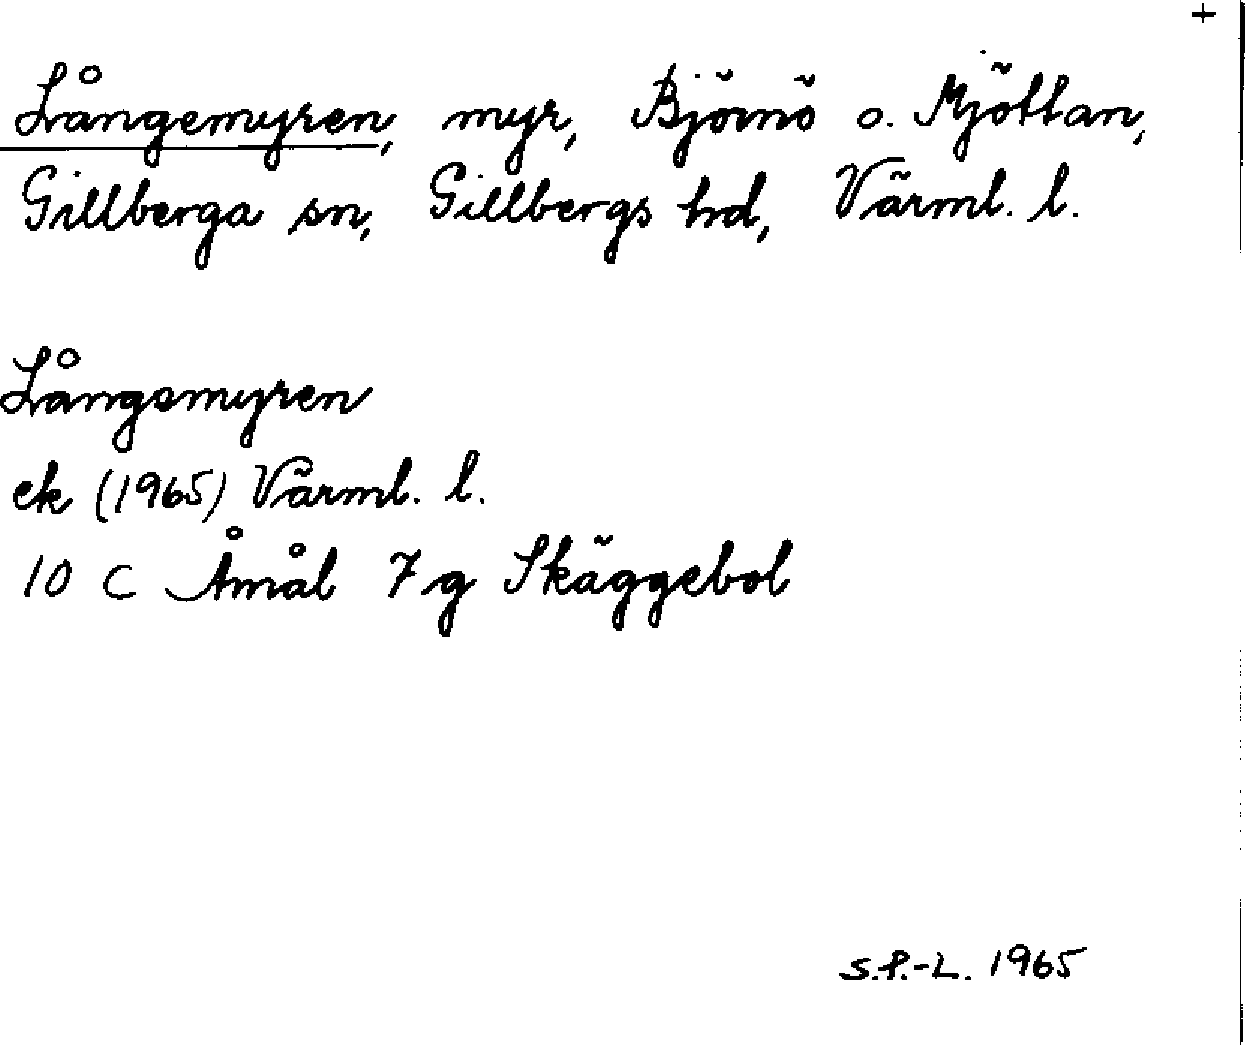 +
Långemyren, myr, Björnö o. Mjöttan,
Gillberga sn, Gillbergs hd, Värml. l.
Långemyren
ek (1965) Värml. l.
10 C Åmål 7 g Skäggebol
S.P.-L. 1965